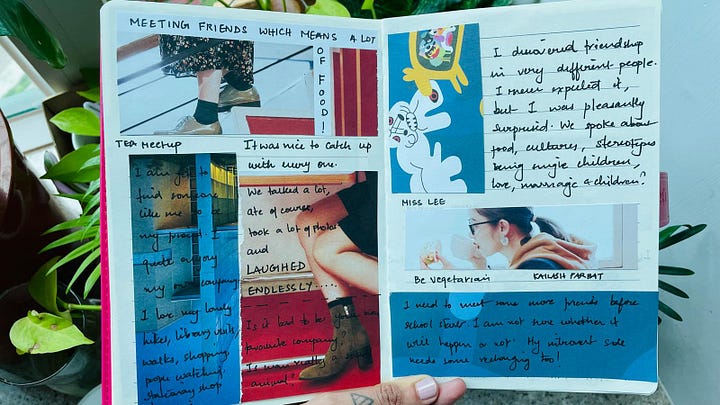 MEETING FRIENDS WHICH MEANS A LOT
OF FOOD!
TEA MEETUP
I am yet to
find someone
like me to be
my friend. I
quite enjoy
my own company.
I love my lonely
hikes, library visits,
walks, shopping,
people watching,
stationary shop
It was nice to catch up
with every one.
We talked a lot,
ate of course,
took a lot of photos
and
LAUGHED
ENDLESSLY.....
Is it bad to be your own
favourite company.
Is man really a social
animal?
I discovered friendship
in very different people.
I never expected it,
but I was pleasantly
surprised. We spoke about
food, cultures, stereotypes
being single children,
love, marriage & children?
MISS LEE
Be vegetarian
KAILASH PARBAT
I need to meet some more friends before
school starts. I am not sure whether it
will happen or not. My introvert side
needs some recharging too!